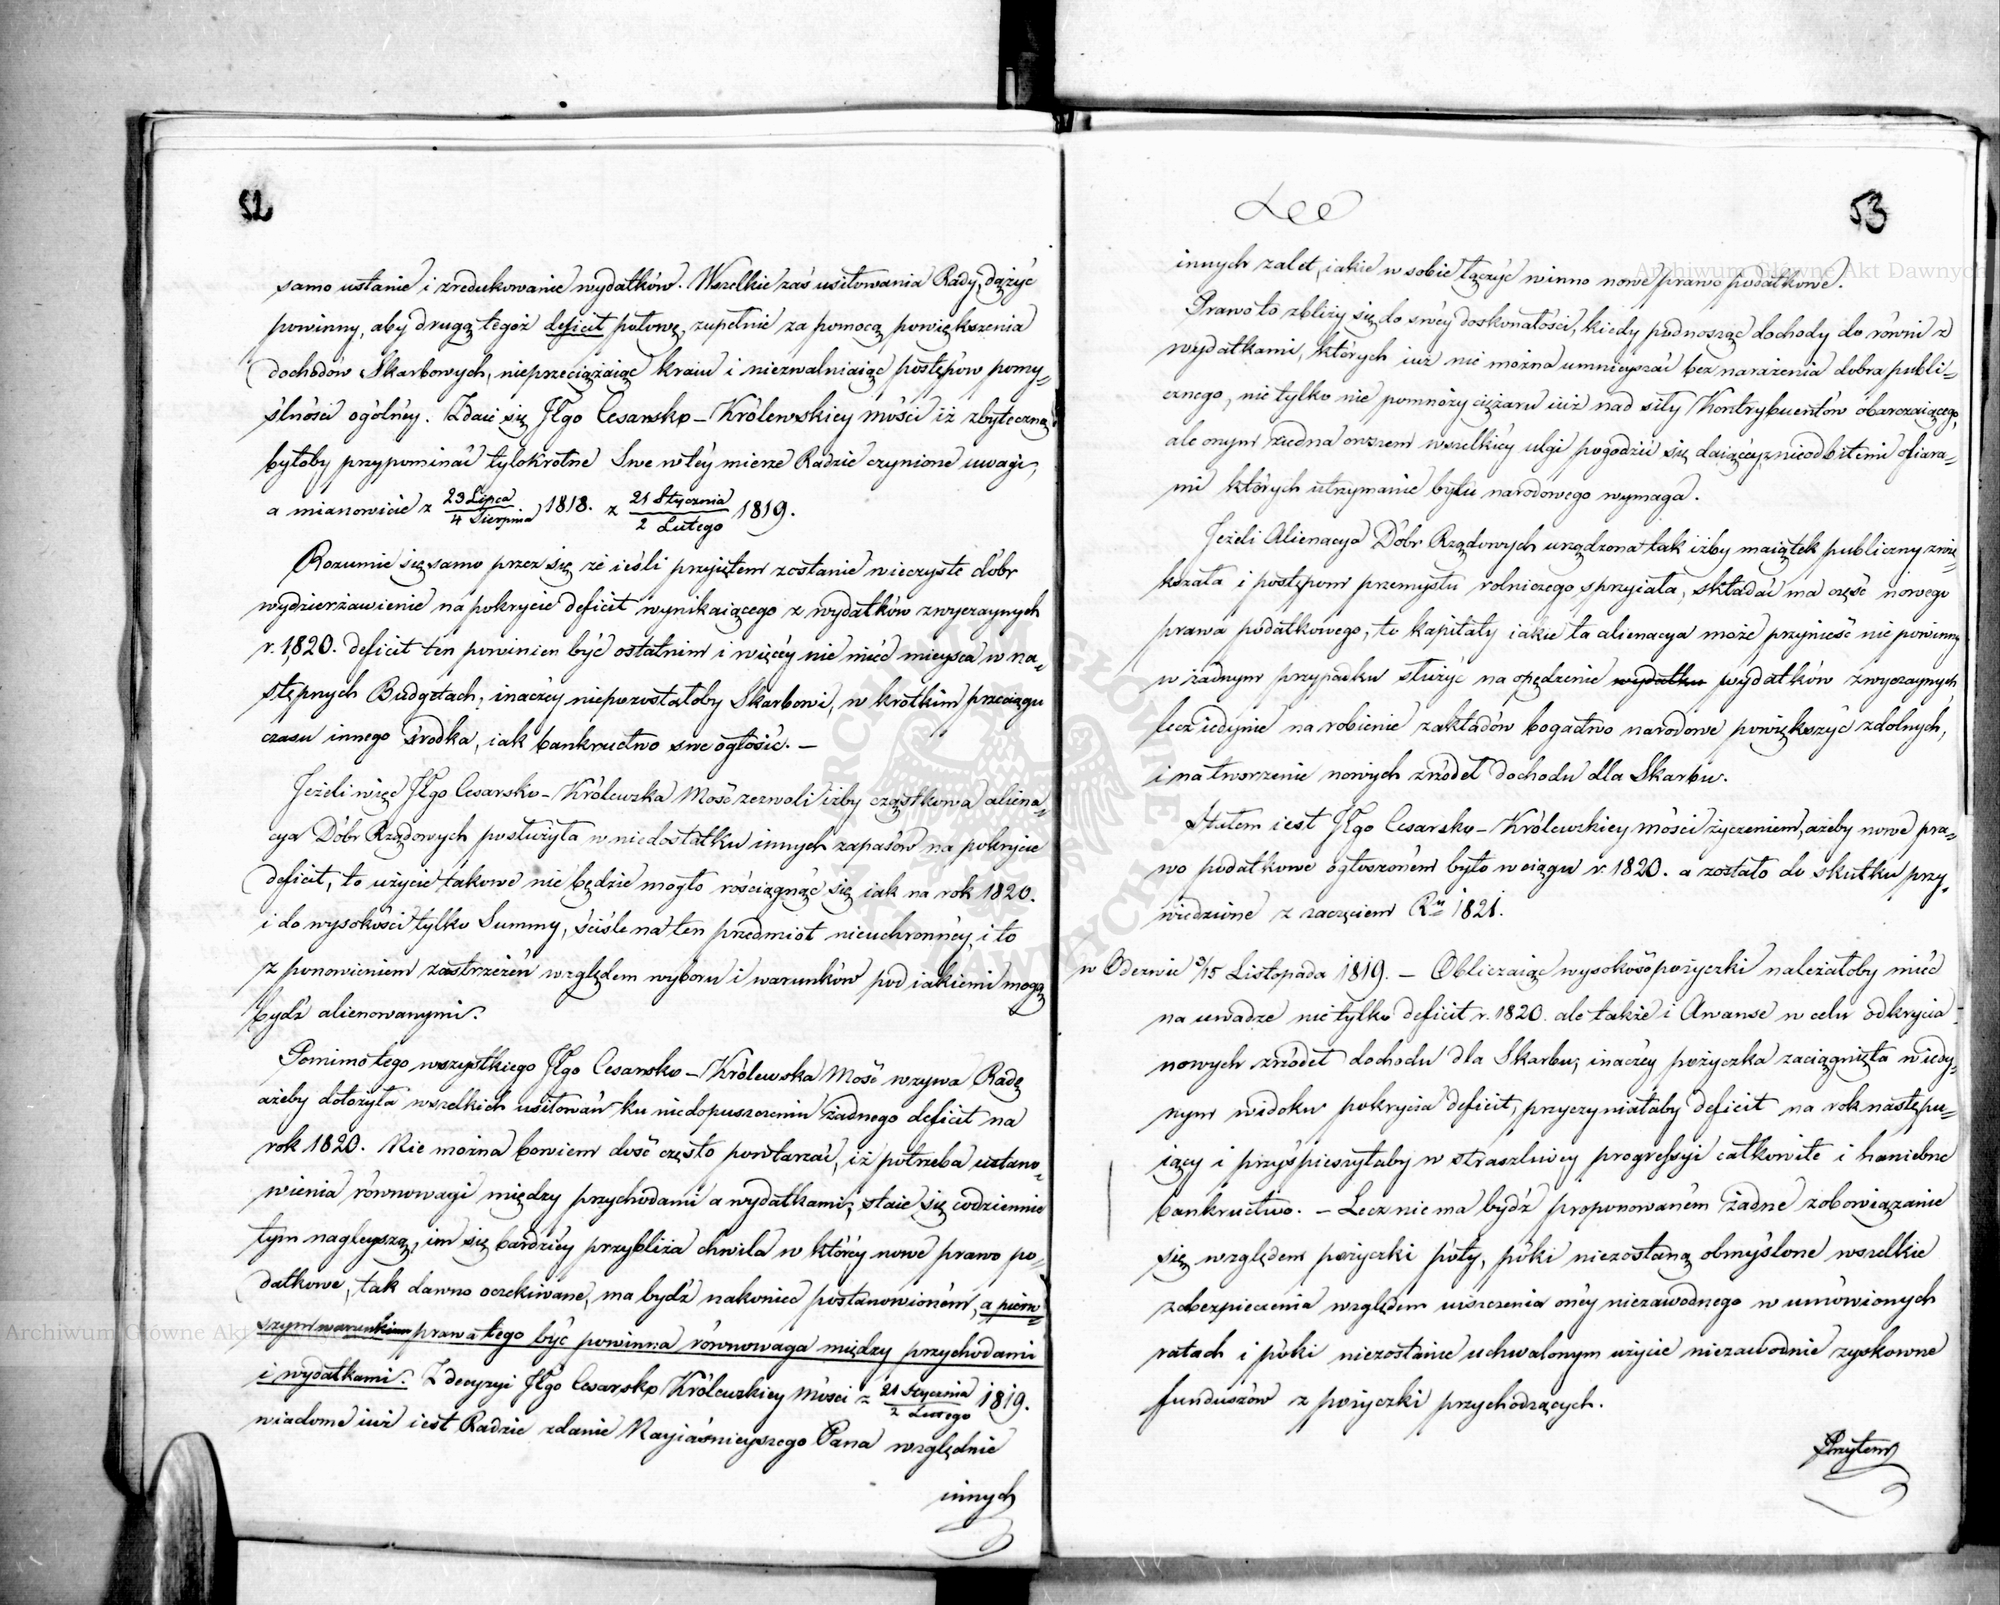 52
samo ustanie i zredukowanie wydatków. Wszelkie zaś usiłowania Rady, dążyć
powinny, aby drugą tegoż deficit połowę, zupełnie za pomocą powiększenia
dochodów Skarbowych, nieprzeciążaiąc kraiu i niezwalniaiąc postępów pomy-
ślności ogólnéy. Zdaie się JEgo Cesarsko-Królewskiey Mości iż zbyteczną
byłoby przypominać tylokrotne Swe w téy mierze Radzie czynione uwagi,
a mianowicie z 23 Lipca/4 Sierpnia 1818. z 21 Stycznia/2 Lutego 1819.
Rozumie się samo przez się że ieśli przyiętem zostanie wieczyste dóbr
wydzierżawienie na pokrycie deficit wynikaiącego z wydatków zwyczaynych
r. 1820. deficit ten powinien być ostatnim i więcéy nie mieć mieysca w na-
stępnych Budgetach, inaczéy niepozostałoby Skarbowi, w krótkim przeciągu
czasu innego środka, iak bankructwo swe ogłosić. —
Jeżeli więc JEgo Cesarsko-Królewska Mość zezwoli iżby cząstkowa aliena-
cya Dóbr Rządowych posłużyła w niedostatku innych zapasów na pokrycie
deficit, to użycie takowe nie będzie mogło rościągnąć się iak na rok 1820.
i do wysokości tylko Summy, ściśle na ten przedmiot nieuchronnéy, i to
z ponowieniem zastrzeżeń względem wyboru i warunków pod iakiemi mogą
bydź alienowanymi.
Pomimo tego wszystkiego JEgo Cesarsko-Królewska Mość wzywa Radę
ażeby dołożyła wszelkich usiłowań ku niedopuszczeniu żadnego deficit na
rok 1820. Nie można bowiem dość często powtarzać, iż potrzeba ustano-
wienia równowagi między przychodami a wydatkami, staie się codziennie
tym nagleyszą, im się bardziéy przybliża chwila w któréy nowe prawo po-
datkowe, tak dawno oczekiwane, ma bydź nakoniec postanowioném, a pierw-
szym warunkiem prawa tego być powinna równowaga między przychodami
i wydatkami. Z decyzyi JEgo Cesarsko Królewskiey Mości z 21 Stycznia/2 Lutego 1819.
wiadome iuż iest Radzie zdanie Nayiaśnieyszego Pana względnie
innych
53
innych zalet, iakie w sobie łączyć winno nowe prawo podatkowe.
Prawo to zbliży się do swéy doskonałości, kiedy podnosząc dochody do równi z
wydatkami, których iuż nie można umnieyszać bez narażenia dobra publi-
cznego, nie tylko nie pomnoży ciężaru iuż nad siły Kontrybuentów obarczaiącego,
ale onym zjedna owszem wszelkiéy ulgi pogodzić się daiącéy z nieodbitemi ofiara-
mi których utrzymanie bytu narodowego wymaga.
Jeżeli Alienacya Dóbr Rządowych urządzona tak iżby maiątek publiczny zwię-
kszała i postępom przemysłu rolniczego sprzyiała, składać ma część nowego
prawa podatkowego, to kapitały iakie ta alienacya może przynieść nie powinny
w żadnym przypadku służyć na opędzenie wydatku wydatków zwyczaynych
lecz iedynie na robienie zakładów bogactwo narodowe powiększyć zdolnych,
i na tworzenie nowych źródeł dochodu dla Skarbu.
Stałem iest JEgo Cesarsko-Królewskiey Mości życzeniem, ażeby nowe pra-
wo podatkowe ogłoszoném było w ciągu r. 1820. a zostało do skutku przy-
wiedzione z zaczęciem Ru 1821.
w Odezwie 3/15 Listopada 1819. — Obliczaiąc wysokość pożyczki należałoby mieć
na uwadze nie tylko deficit r. 1820. ale także i Awanse w celu odkrycia
nowych źródeł dochodu dla Skarbu; inaczéy pożyczka zaciągnięta w iedy-
nym widoku pokrycia deficit, przyczyniałaby deficit na rok następu-
iący i przyśpieszyłaby w straszliwéy progressyi całkowite i haniebne
bankructwo. — Lecz nie ma bydź proponowaném żadne zobowiązanie
się względem pożyczki póty, póki niezostaną obmyślone wszelkie
zabezpieczenia względem uiszczenia onéy niezawodnego w umówionych
ratach i póki niezostanie uchwalonym użycie niezawodnie zyskowne
funduszów z pożyczki przychodzących.
Przytem
Archiwum Główne Akt Dawnych